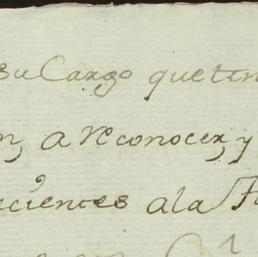 su Cargo que ten
n, a reconocer, y
ecientes a la